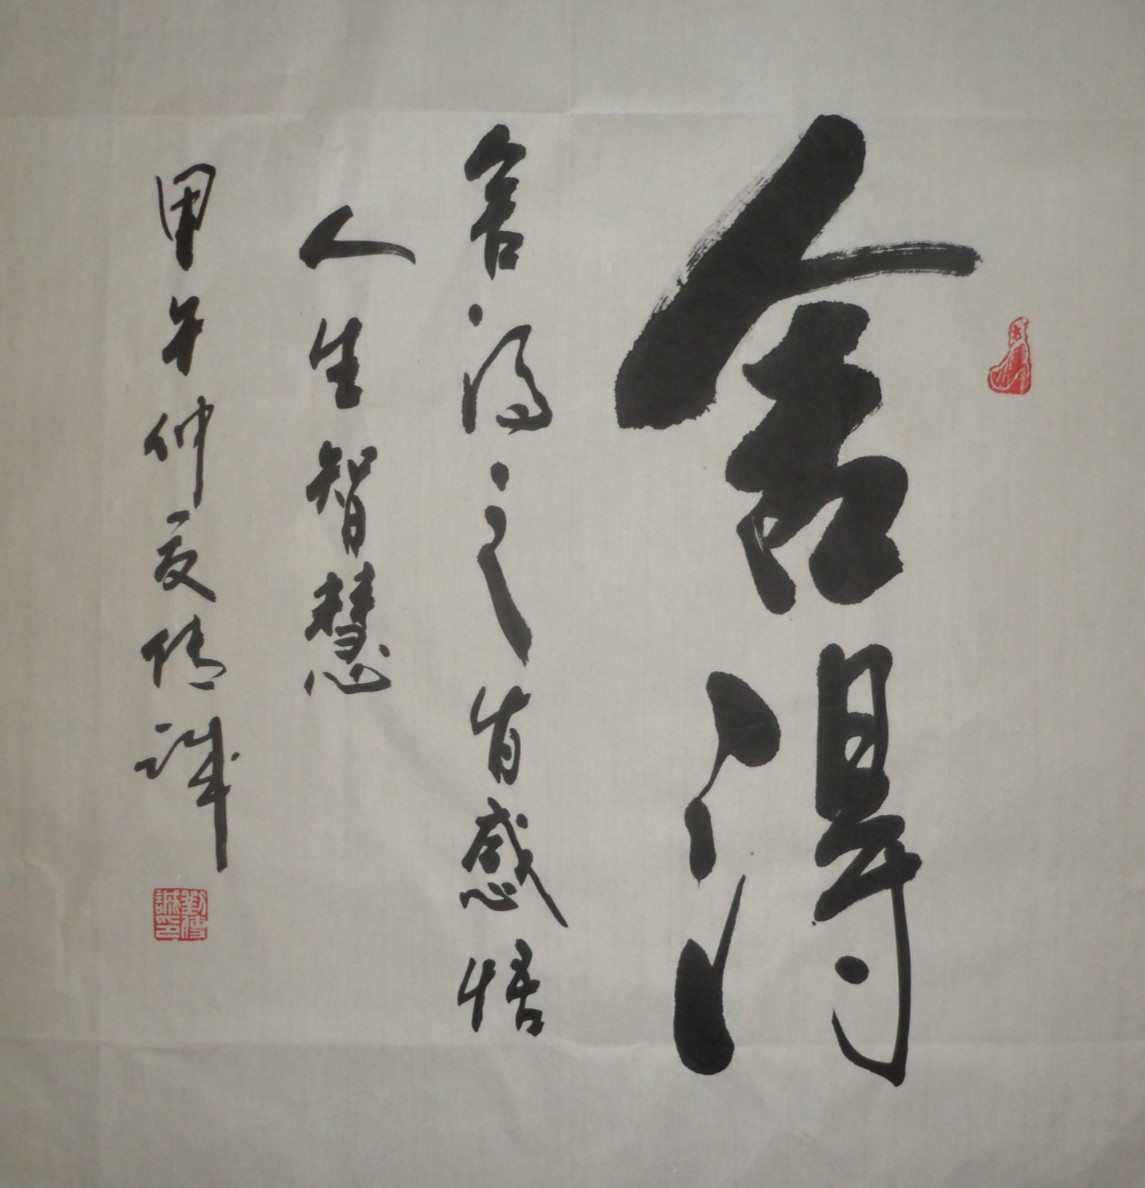 舍得
舍得之肯感悟
人生智慧
甲午仲夏传诚
劉傳誠印